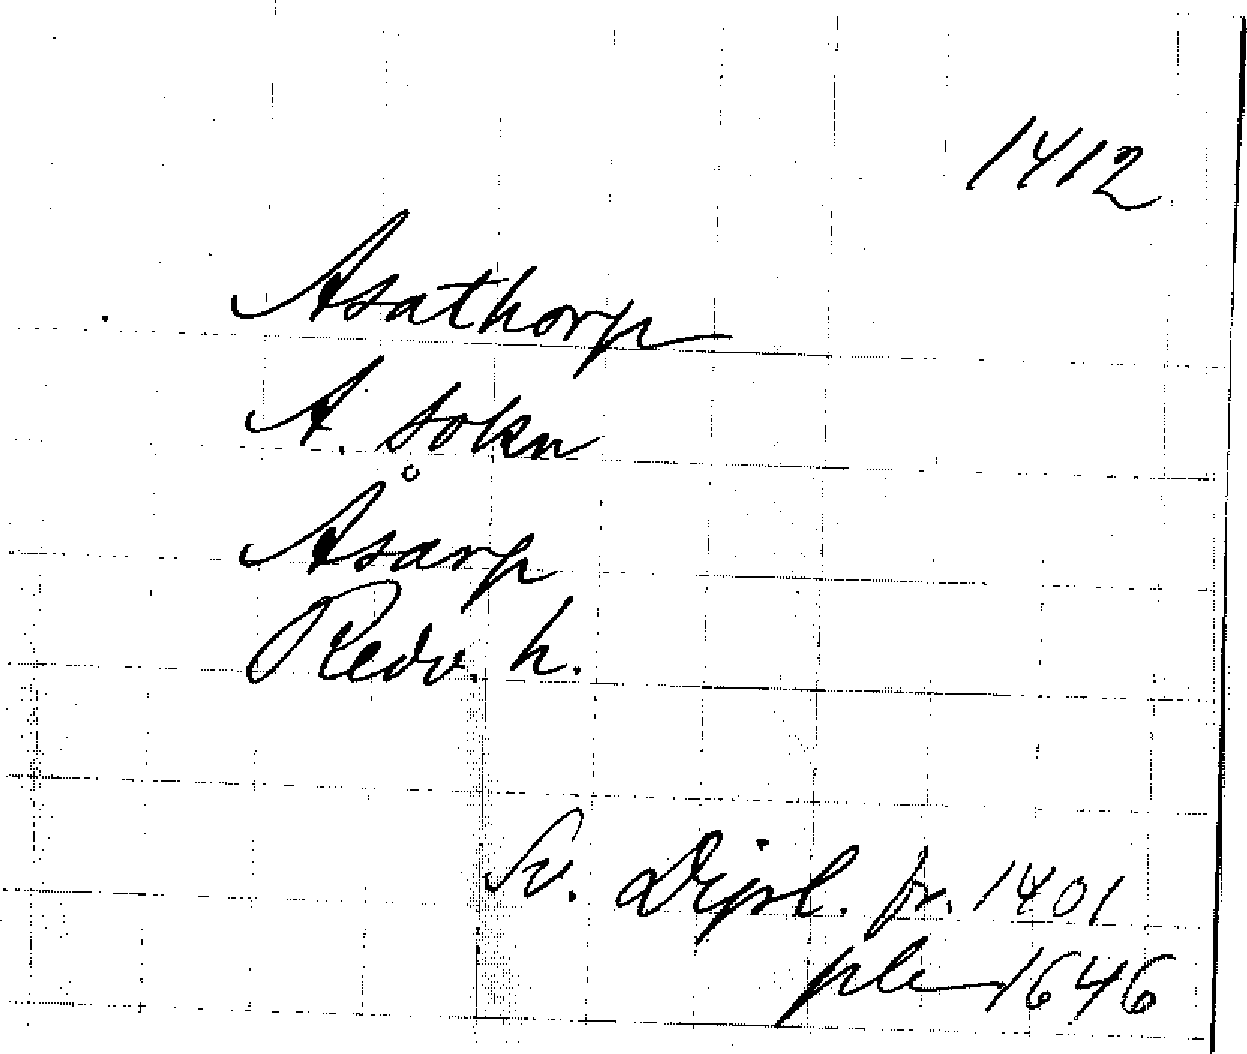 1412
Asathorp
A. sokn
Åsarp
Redv. h.
Sv. Dipl. fr. 1401
1646